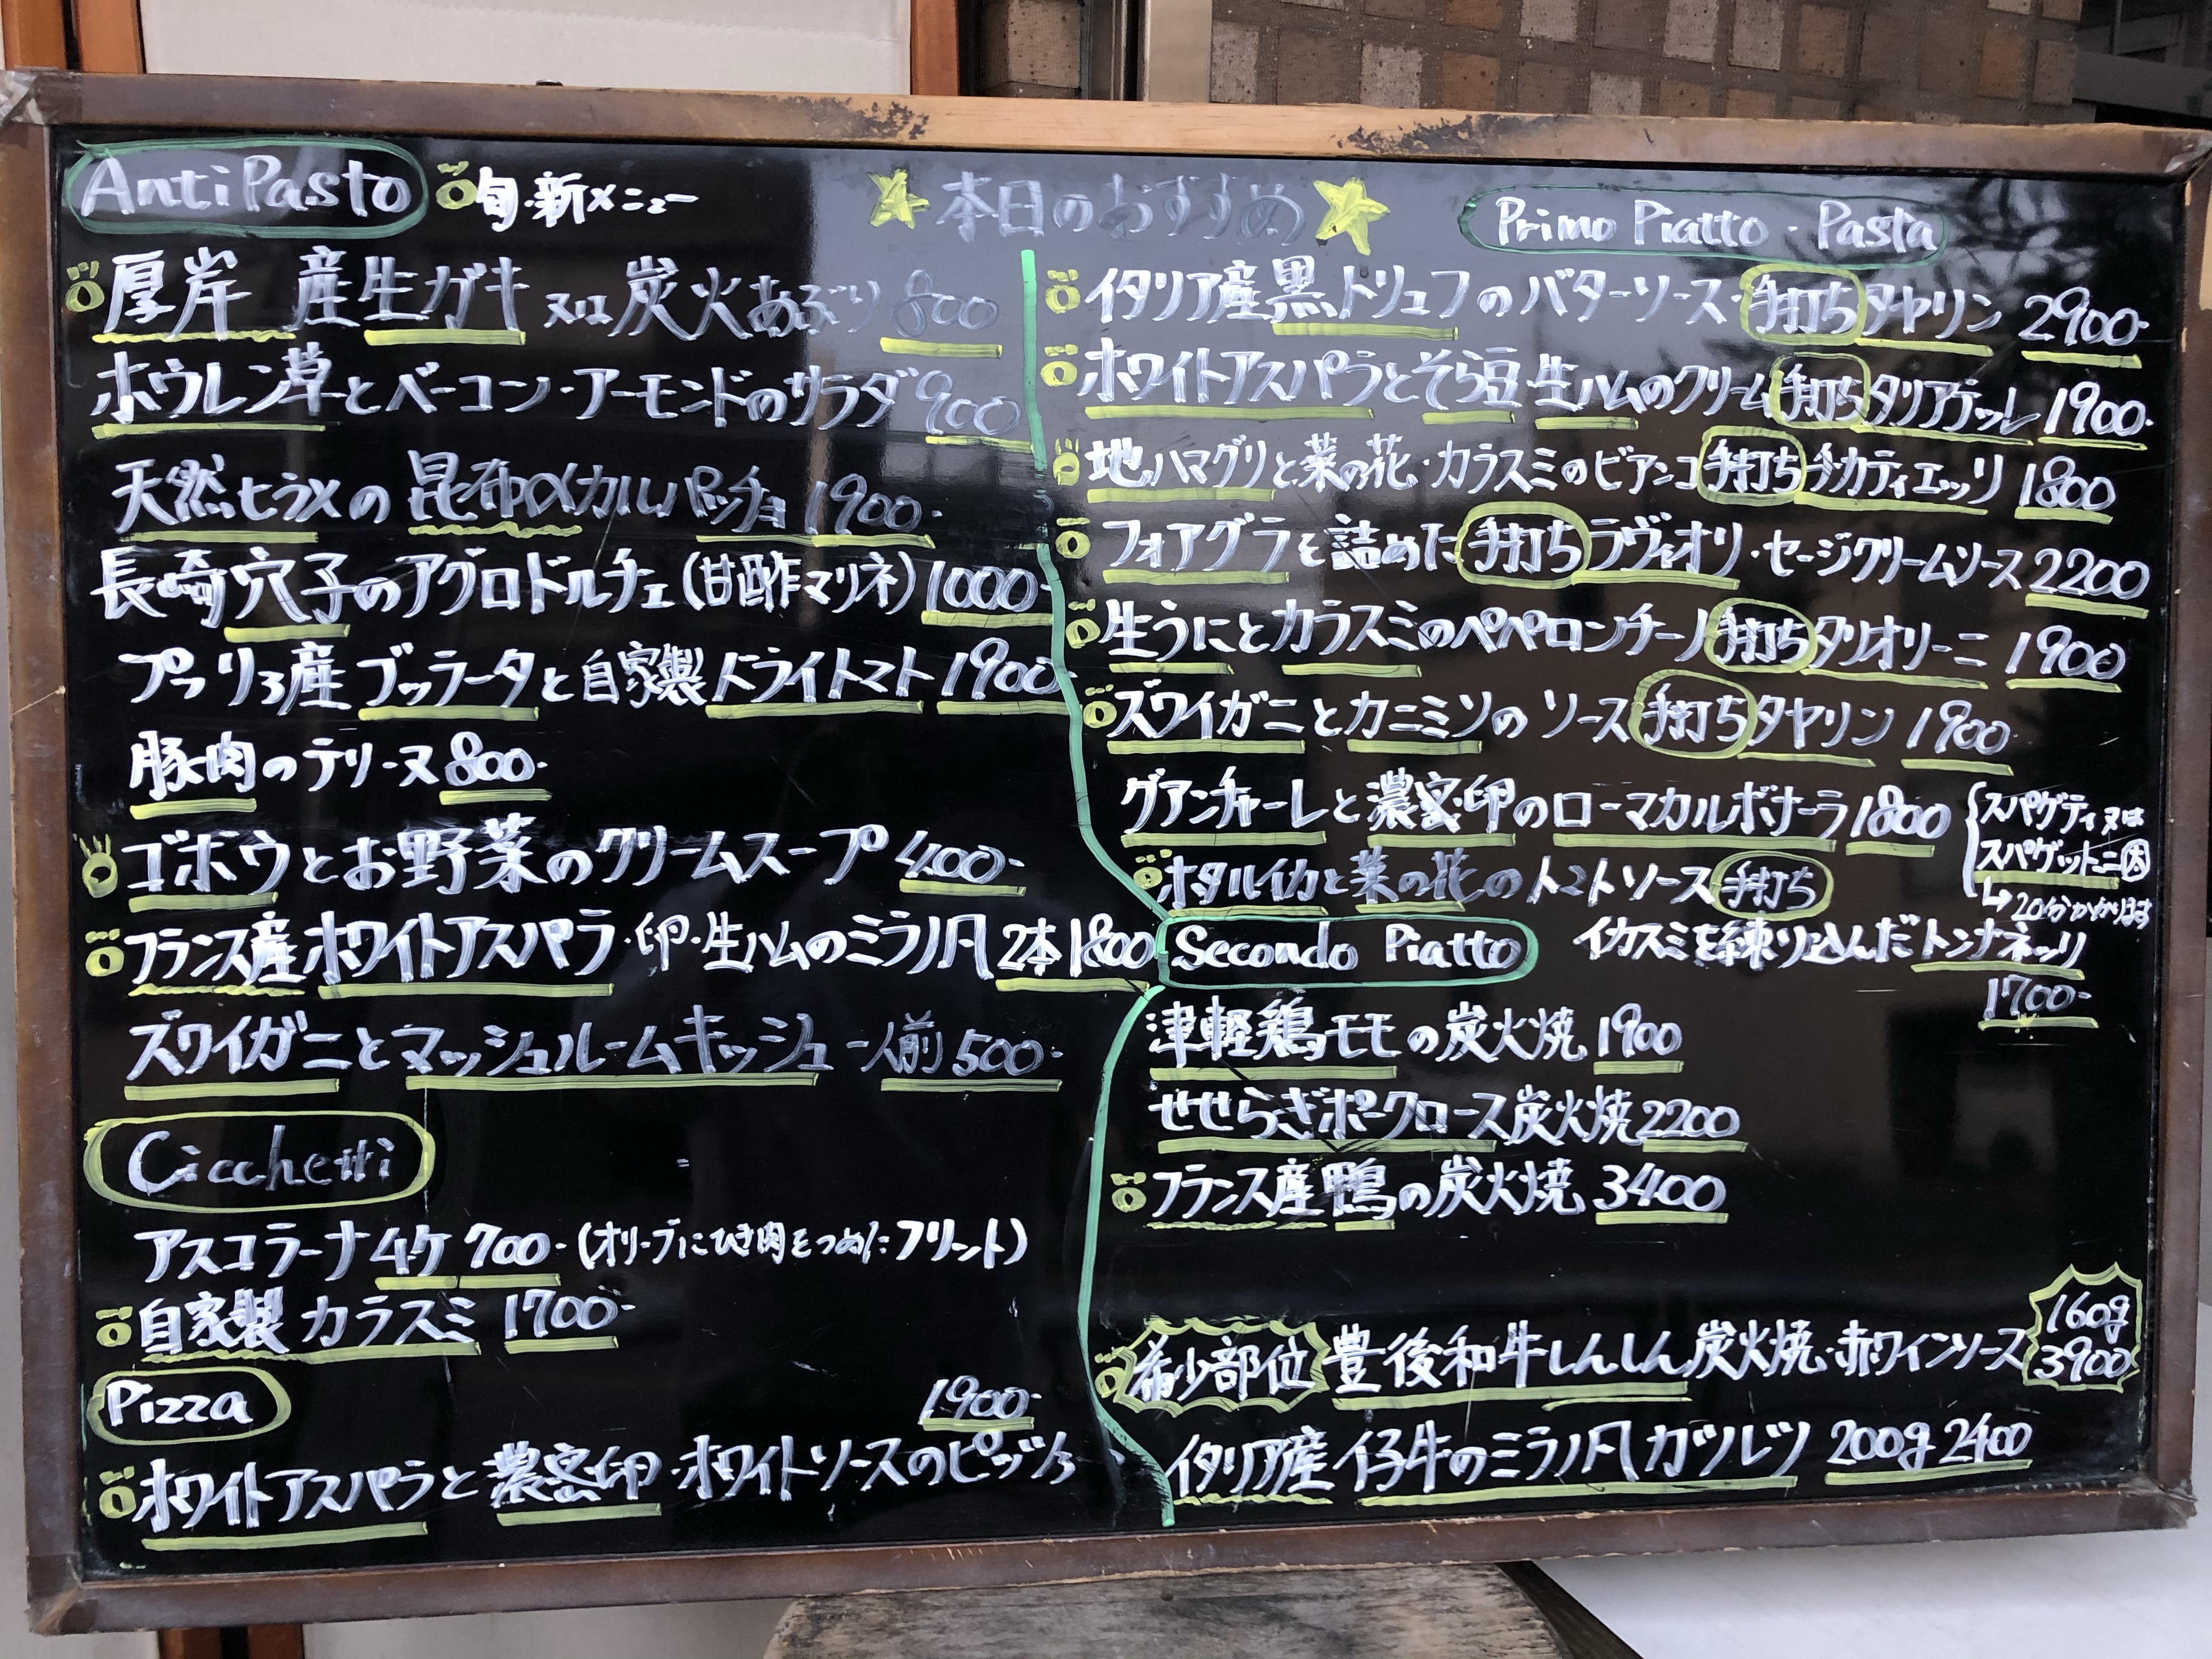 AntiPasto
旬・新メニュー
本日のおすすめ
厚岸 産生ガキ又は炭火あぶり 800
ホウレン草とベーコン・アーモンドのサラダ 900
天然ヒラメの昆布〆カルパッチョ 1900-
長崎穴子のアグロドルチェ(甘酢マリネ) 1000-
プーリア産ブッラータと自家製ドライトマト 1900-
豚肉のテリーヌ 800-
ゴボウとお野菜のクリームスープ 400-
フランス産ホワイトアスパラ・卵・生ハムのミラノ風 2本1800
ズワイガニとマッシュルームキッシュ 一人前 500-
Cicchetti
アスコラーナ4ケ 700-(オリーブにひき肉をつめたフリット)
自家製カラスミ 1700-
Pizza
1900-
ホワイトアスパラと濃密卵・ホワイトソースのピッツァ
Primo Piatto・Pasta
イタリア産黒トリュフのバターソース・手打ちタヤリン 2900-
ホワイトアスパラとそら豆・生ハムのクリーム手打ちタリアテッレ 1900-
地ハマグリと菜の花・カラスミのビアンコ手打ちチカティエッリ 1800
フォアグラを詰めた手打ちラヴィオリ・セージクリームソース 2200
生うにとカラスミのペペロンチーノ手打ちタリオリーニ 1900
ズワイガニとカニミソのソース手打ちタヤリン 1900-
グアンチャーレと濃密卵のローマカルボナーラ 1800
スパゲティ又は
スパゲットーニ太
↳20分かかります
ホタルイカと菜の花のトマトソース手打ち
イカスミを練り込んだトンナネッリ
1700-
Secondo Piatto
津軽鶏モモの炭火焼 1900
せせらぎポークロース炭火焼 2200
フランス産鴨の炭火焼 3400
希少部位 豊後和牛しんしん炭火焼・赤ワインソース 160g 3900
イタリア産仔牛のミラノ風カツレツ 200g 2400